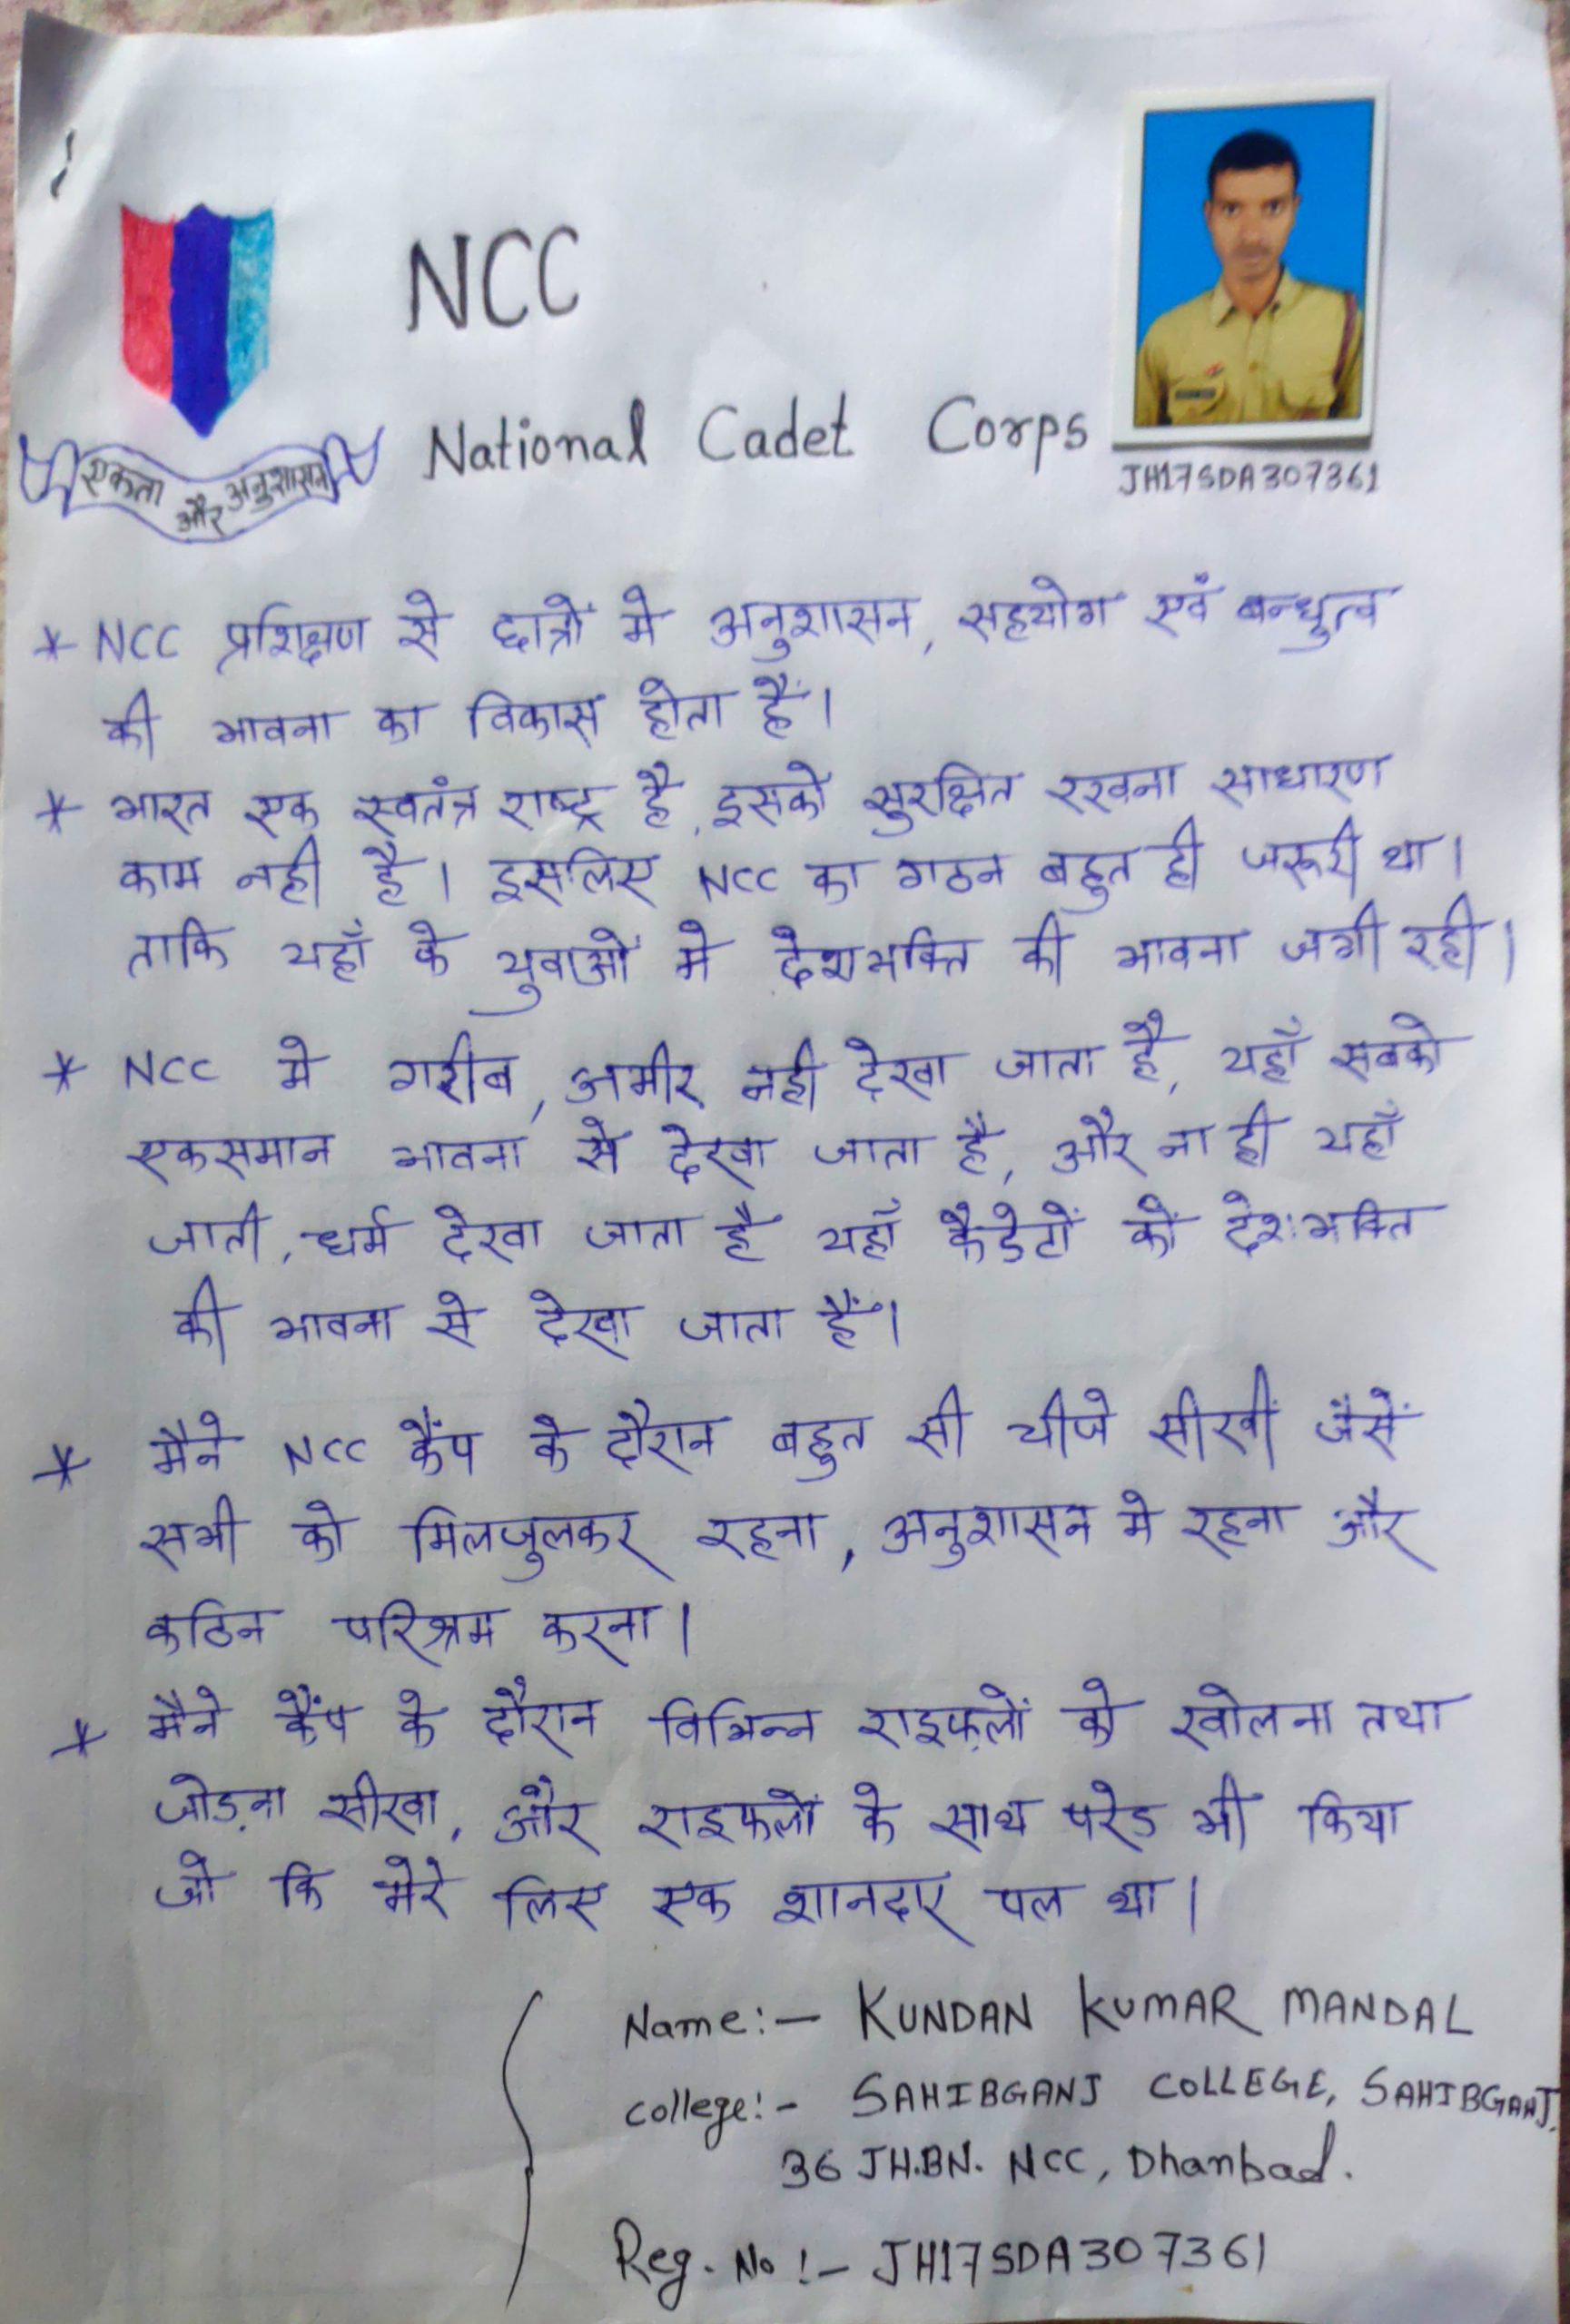 NCC
National Cadet Corps
एकता और अनुशासन
JH17SDA307361
* NCC प्रशिक्षण से छात्रों मे अनुशासन, सहयोग एवं बन्धुत्व
की भावना का विकास होता हैं।
* भारत एक स्वतंत्र राष्ट्र है, इसको सुरक्षित रखना साधारण
काम नही है। इसलिए NCC का गठन बहुत ही जरूरी था।
ताकि यहाँ के युवाओं मे देशभक्ति की भावना जगी रही।
* NCC मे गरीब, अमीर नही देखा जाता है, यहाँ सबको
एकसमान भावना से देखा जाता है, और ना ही यहाँ
जाती, धर्म देखा जाता है यहाँ कैडेटों को देशभक्ति
की भावना से देखा जाता हैं।
* मैने NCC कैंप के दौरान बहुत सी चीजे सीखीं जैसें
सभी को मिलजुलकर रहना, अनुशासन मे रहना और
कठिन परिश्रम करना।
* मैने कैंप के दौरान विभिन्न राइफ़लों को खोलना तथा
जोड़ना सीखा, और राइफलों के साथ परेड भी किया
जो कि मेरे लिए एक शानदार पल था।
Name:- KUNDAN KUMAR MANDAL
college:- SAHIBGANJ COLLEGE, SAHIBGANJ.
36 JH.BN. NCC, Dhanbad.
Reg. No:- JH17SDA307361